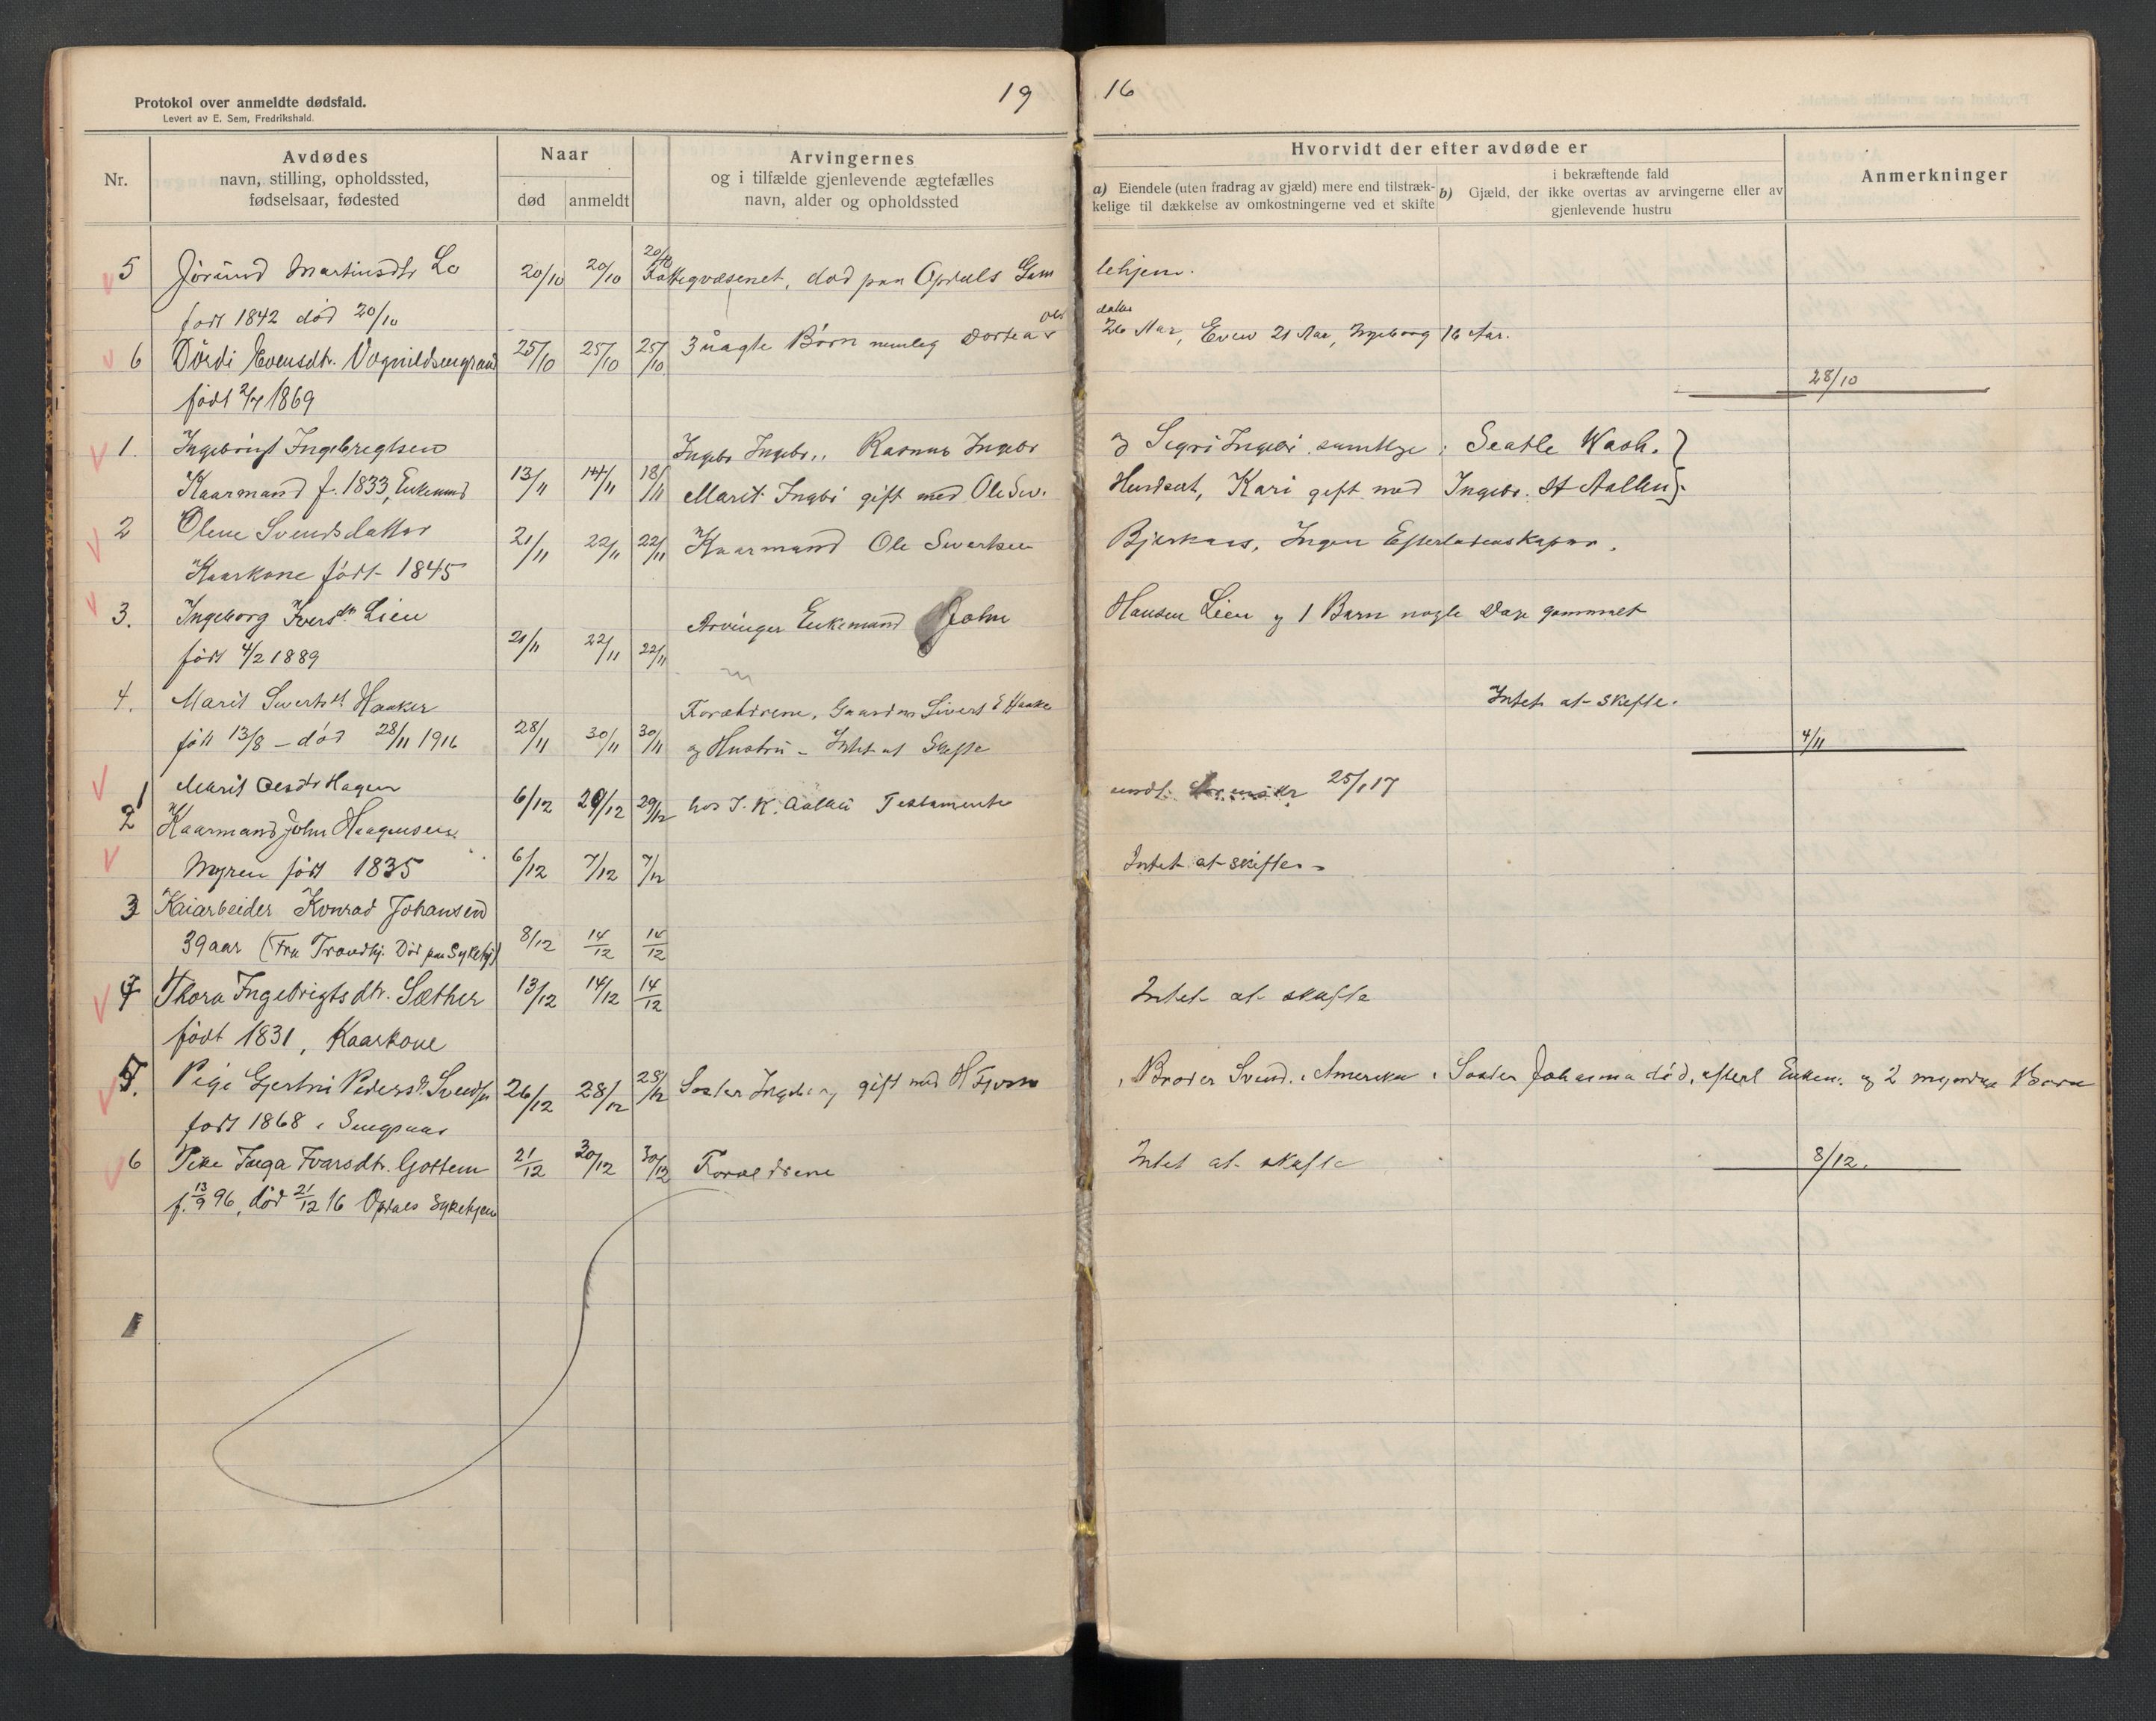 Protokol over anmeldte dødsfald.
Levert av E. Sem, Fredrikshald.
19
16
Nr.
Avdødes
navn, stilling, opholdssted,
fødselsaar, fødested
Naar
død
anmeldt
Arvingernes
og i tilfælde gjenlevende ægtefælles
navn, alder og opholdssted
Hvorvidt der efter avdøde er
a) Eiendele (uten fradrag av gjæld) mere end tilstræk-
kelige til dækkelse av omkostningerne ved et skifte
i bekræftende fald
b) Gjæld, der ikke overtas av arvingerne eller av
gjenlevende hustru
Anmerkninger
5 Jörund Martinsdtr Lo 20/10 20/10 20/10 Fattigvæsenet, død paa Opdals Gam lehjem.
født 1842 død 20/10
6 Dördi Evensdtr. Vognildsengrand 25/10 25/10 25/10 3 uagte Börn nemlig Dortea Ols
datter
26 Aar, Even 21 Aar, Ingeborg 16 Aar.
født 2/7 1869
28/10
1. Ingebrigt Ingebregtsen Ingebr Ingebr., Rasmus Ingebr og Sigri Ingebr. samtlige i Seatle Wash.
Kaarmand f. 1833, Enkemand 13/11 14/11 18/11 Marit Ingbr gift med Ole Siv. Kari gift med Ingebr. St Aalbu
2 Olene Svendsdatter
21/11 22/11 22/11 Kaarmand Ole Sivertsen Bjerkaas, Ingen Efterladenskaper.
Kaarkone født 1845
3. Ingeborg Iversdtr Lien Arvinger Enkemand John Hansen Lien og 1 Barn nogle Dage gammelt
født 4/2 1889 21/11 22/11 22/11
4. Marit Sivertsdt Haaker Forældrene, Gaardm Sivert E Haake Intet at skifte.
født 13/8 – død 28/11 1916 28/11 30/11 30/11 og Hustru – Intet at Skifte
4/11
1 Marit Olsdtr Hagen 6/12 29/12 29/12 hos I. K. Aalbu Testamente 25/1 17
2 Kaarmand John Haagensen
Myren født 1835 6/12 7/12 7/12 Intet at skifte –
3 Kaiarbeider Konrad Johansen
39 aar (Fra Trondhj. Död paa Sykehj) 8/12 14/12 14/12
4 Thora Ingebrigtsdtr. Sæther 13/12 14/12 14/12 Intet at skifte
født 1831, Kaarkone
5. Pige Gjertru Pedersdt. 26/12 28/12 28/12 Søster Ingeborg gift med H , Broder Svend i Amerika, Søster Johanna död, efterl Enkem. og 2 myndige Børn
født 1868 i
6 Pike Inga Ivarsdtr. Gottem 21/12 30/12 30/12 Forældrene Intet at skifte
8/12.
f. 13/9 96, död 21/12 16 Opdals Sykehjem
1